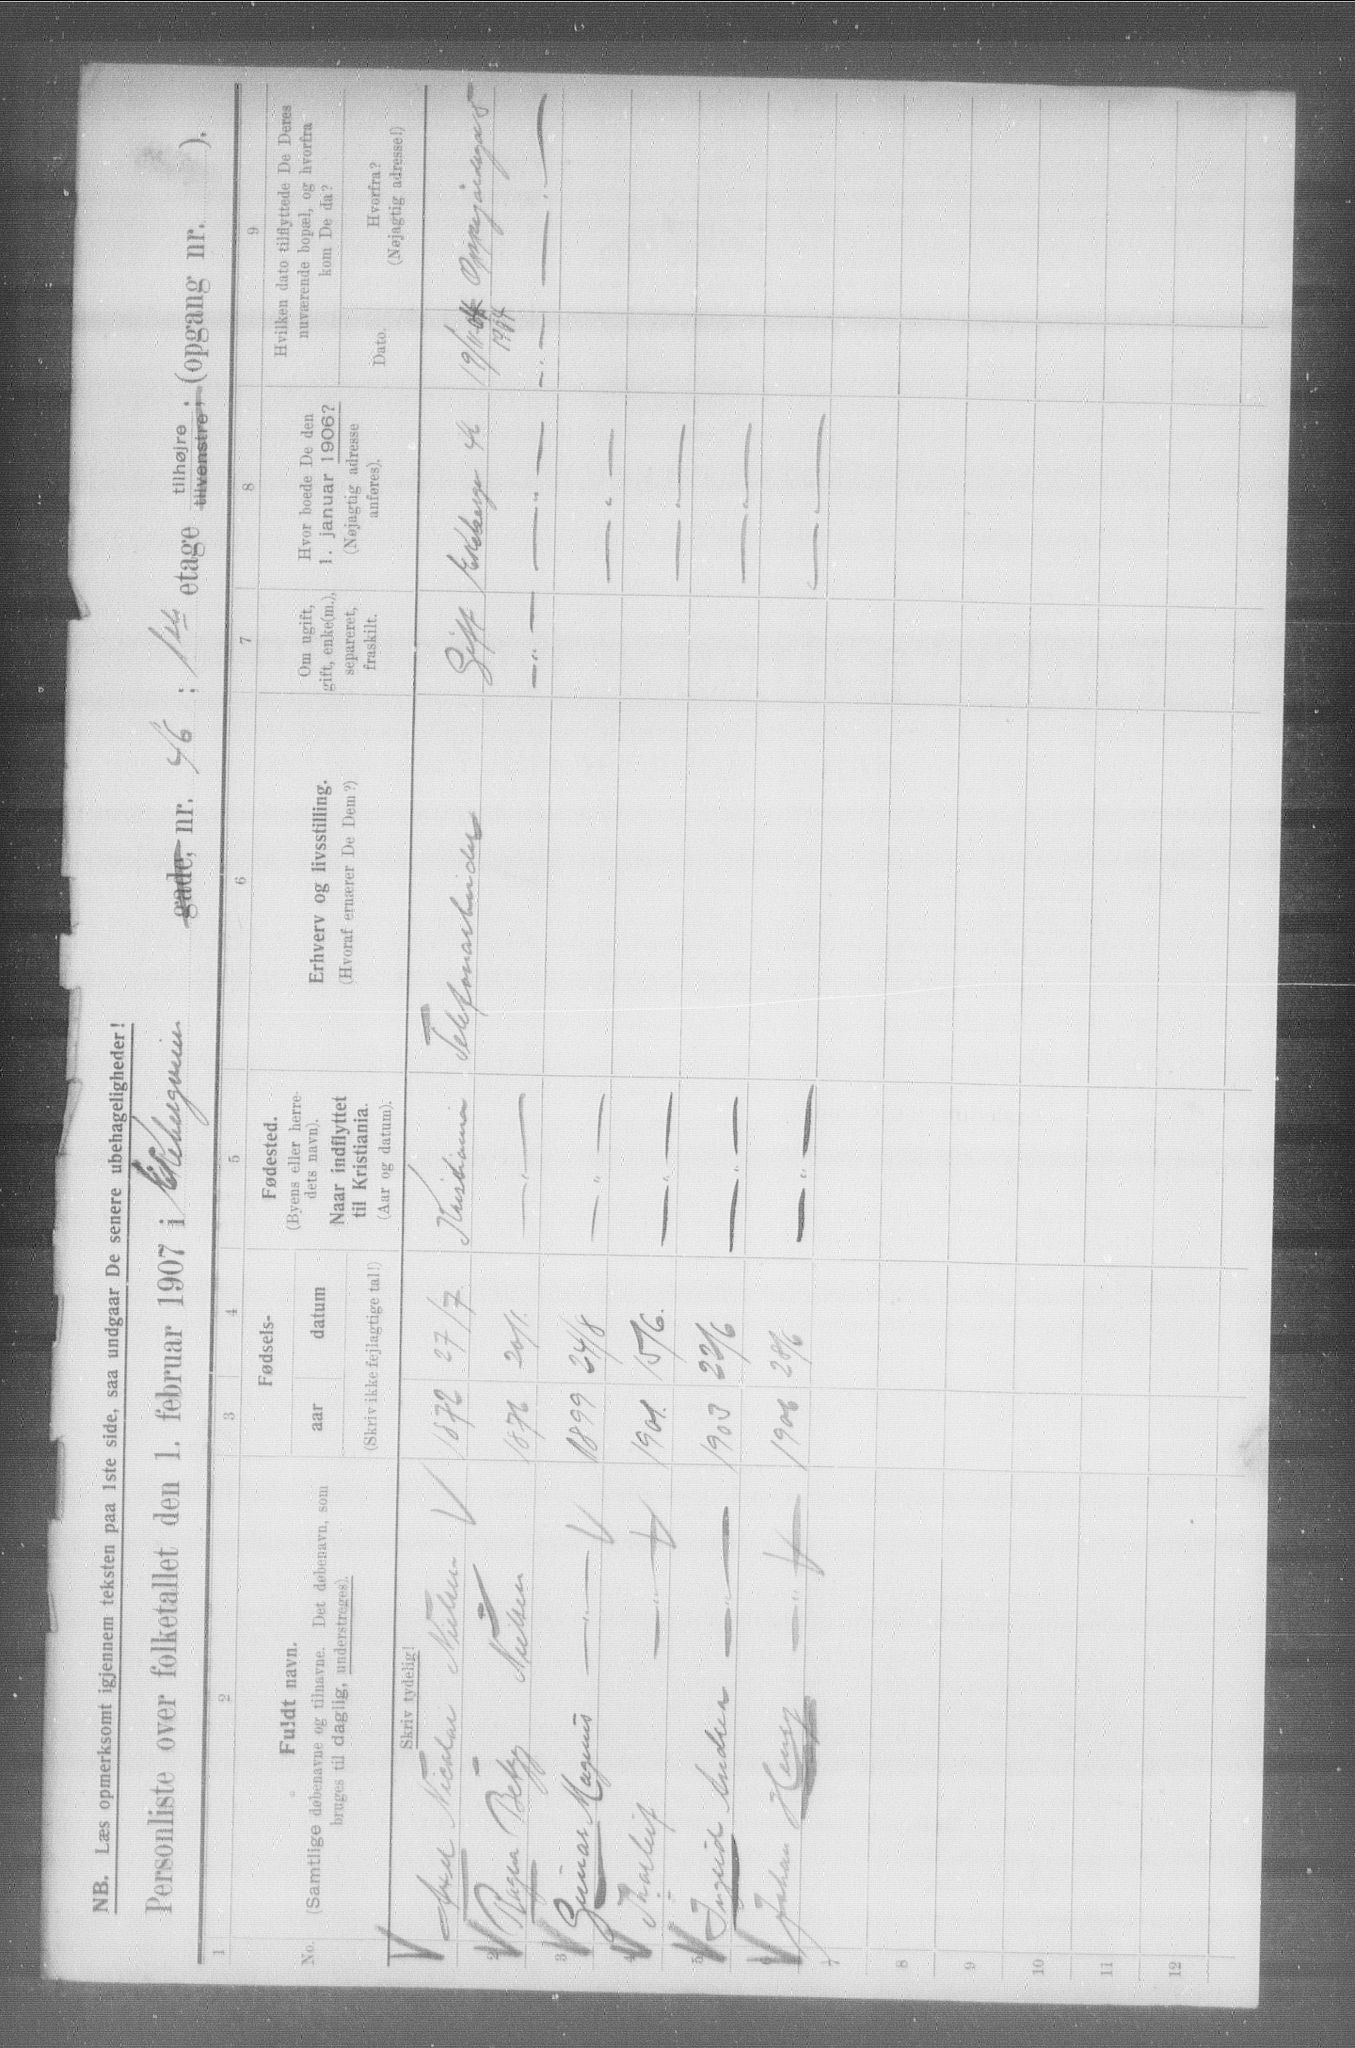 NB. Læs opmerksomt igjennem teksten paa 1ste side, saa undgaar De senere ubehageligheder!
Personliste over folketallet den 1. februar 1907 i Ekebergveien gade, nr. 46; 1ste etage tilhøjre, tilvenstre; (opgang nr. ).
1 2 3 4 5 6 7 8 9
No.
Fuldt navn.
(Samtlige døbenavne og tilnavne. Det døbenavn, som
bruges til daglig, understreges).
Skriv tydelig!
Fødsels-
aar datum
(Skriv ikke fejlagtige tal!)
Fødested.
(Byens eller herre-
dets navn).
Naar indflyttet
til Kristiania.
(Aar og datum).
Erhverv og livsstilling.
(Hvoraf ernærer De Dem?)
Om ugift,
gift, enke(m.),
separeret,
fraskilt.
Hvor boede De den
1. januar 1906?
(Nøjagtig adresse
anføres).
Hvilken dato tilflyttede De Deres
nuværende bopæl, og hvorfra
kom De da?
Dato.
Hvorfra?
(Nøjagtig adresse!)
Axel Nicolai Nielsen 1872 27/7 Kristiania Telefonarbeider Gift Ekebergv 46 19/10 1904
2 Betzy Nielsen 1876 20/1. — " — — " — — " — — " — — " —
3 Gunar Magnus — " — 1899 24/8 — " — — " —
4 Thorleif — " — 1901. 15/6. — " — — " —
5 Ingrid Andrea — " — 1903 23/6 — " — — " —
6 Johan Henry — " — 1906 28/6 — " — — " —
7
8
9
10
11
12